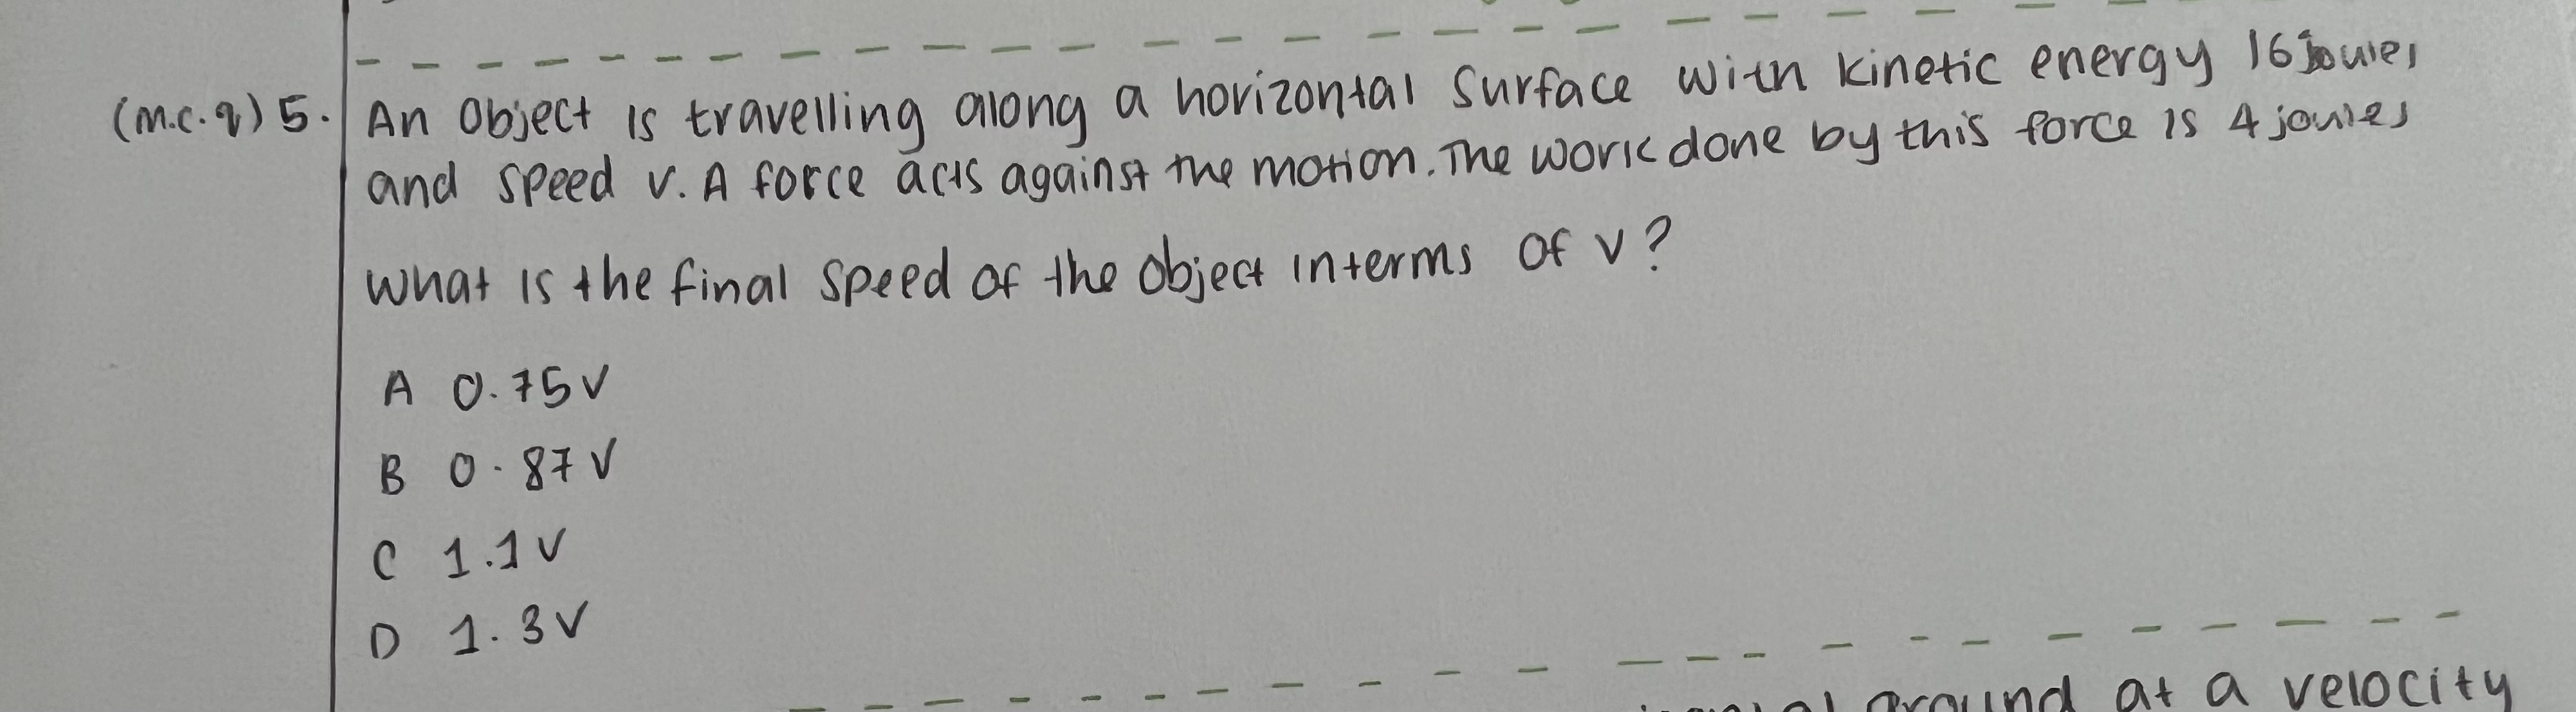 (m.c.q) 5. An Object is travelling along a horizontal surface with kinetic energy 16 joules
and speed v. A force acts against the motion. The work done by this force is 4 joules
What is the final speed of the object interms of v?
A 0.75 v
B 0.87 v
C 1.1 v
D 1.3 v
ground at a velocity